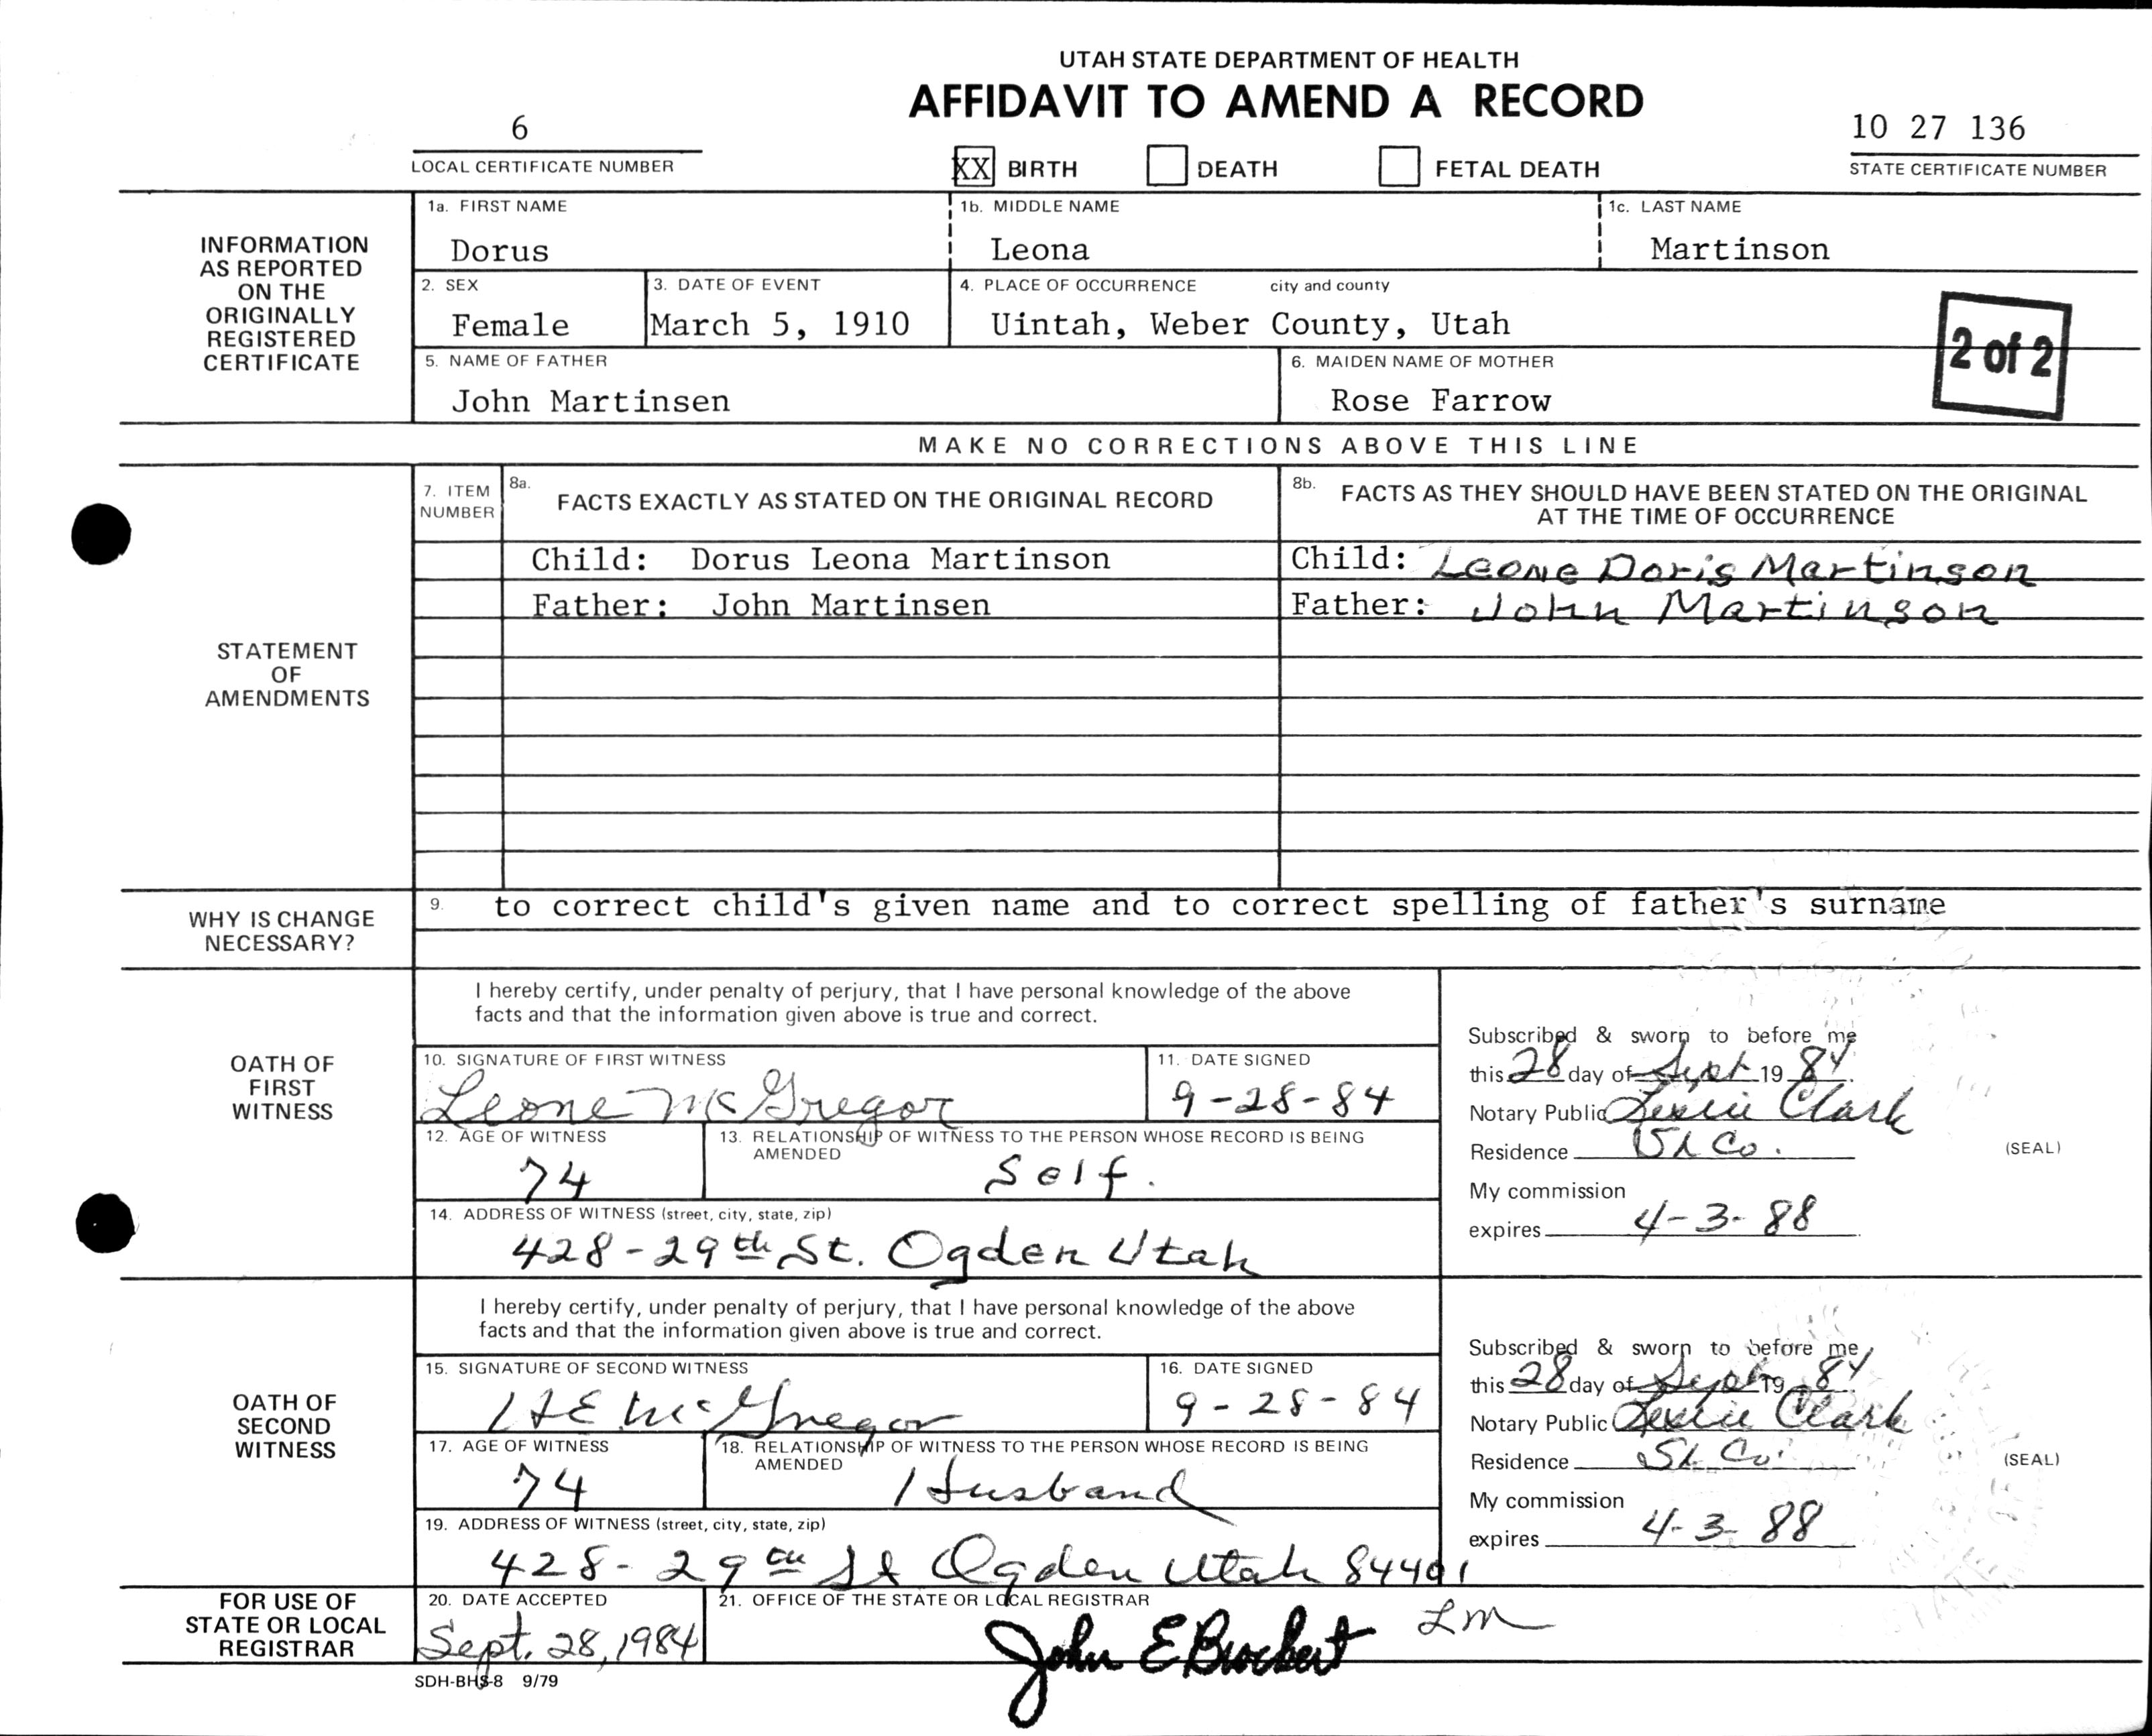 UTAH STATE DEPARTMENT OF HEALTH
AFFIDAVIT TO AMEND A RECORD
6
LOCAL CERTIFICATE NUMBER
XX BIRTH DEATH FETAL DEATH
10 27 136
STATE CERTIFICATE NUMBER
INFORMATION AS REPORTED ON THE ORIGINALLY REGISTERED CERTIFICATE
1a. FIRST NAME 1b. MIDDLE NAME 1c. LAST NAME
Dorus Leona Martinson
2. SEX 3. DATE OF EVENT 4. PLACE OF OCCURRENCE city and county
Female March 5, 1910 Uintah, Weber County, Utah
2 of 2
5. NAME OF FATHER 6. MAIDEN NAME OF MOTHER
John Martinsen Rose Farrow
MAKE NO CORRECTIONS ABOVE THIS LINE
STATEMENT OF AMENDMENTS
7. ITEM NUMBER
8a. FACTS EXACTLY AS STATED ON THE ORIGINAL RECORD
8b. FACTS AS THEY SHOULD HAVE BEEN STATED ON THE ORIGINAL
AT THE TIME OF OCCURRENCE
Child: Dorus Leona Martinson Child: Leone Doris Martinson
Father: John Martinsen Father: John Martinson
WHY IS CHANGE NECESSARY?
9. to correct child's given name and to correct spelling of father's surname
OATH OF FIRST WITNESS
I hereby certify, under penalty of perjury, that I have personal knowledge of the above
facts and that the information given above is true and correct.
10. SIGNATURE OF FIRST WITNESS 11. DATE SIGNED
Leone McGregor 9-28-84
12. AGE OF WITNESS 13. RELATIONSHIP OF WITNESS TO THE PERSON WHOSE RECORD IS BEING AMENDED
74 Self.
14. ADDRESS OF WITNESS (street, city, state, zip)
428-29th St. Ogden Utah
Subscribed & sworn to before me
this 28 day of Sept 19 84.
Notary Public Clark
Residence SL Co.
(SEAL)
My commission
expires 4-3-88
OATH OF SECOND WITNESS
I hereby certify, under penalty of perjury, that I have personal knowledge of the above
facts and that the information given above is true and correct.
15. SIGNATURE OF SECOND WITNESS 16. DATE SIGNED
H E McGregor 9-28-84
17. AGE OF WITNESS 18. RELATIONSHIP OF WITNESS TO THE PERSON WHOSE RECORD IS BEING AMENDED
74 Husband
19. ADDRESS OF WITNESS (street, city, state, zip)
428-29th St Ogden Utah 84401
Subscribed & sworn to before me
this 28 day of Sept 19 84
Notary Public Clark
Residence SL Co.
(SEAL)
My commission
expires 4-3-88
FOR USE OF STATE OR LOCAL REGISTRAR
20. DATE ACCEPTED 21. OFFICE OF THE STATE OR LOCAL REGISTRAR
Sept. 28, 1984 John E Brockert Lm
SDH-BHS-8 9/79